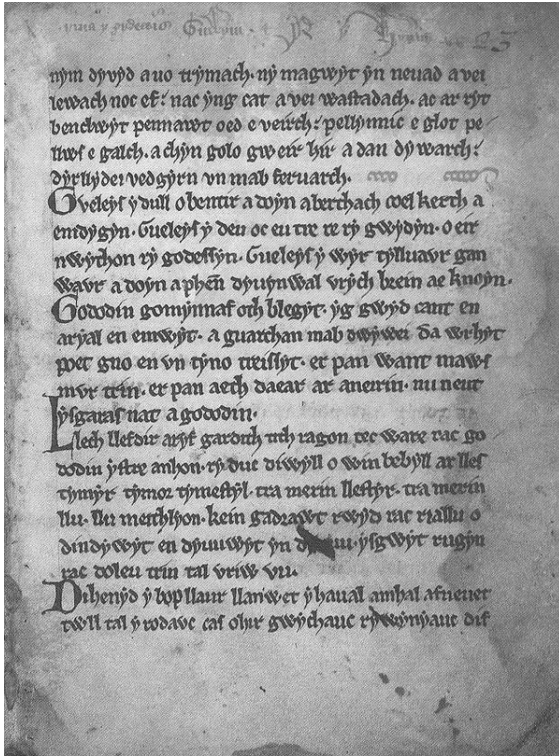 25
nym dyvyd a uo trymach. ny magwyt yn neuad a vei
lewach noc ef: nac yng cat a vei wastadach. ac ar ryt
benclwyt pennawt oed e veirch: pellynnic e glot pe
llws e galch. a chyn golo gweir hir a dan dywarch:
dyrllydei vedgyrn vn mab feruarch.
Gveleys y dull o bentir a doyn aberthach coel kerth a
emdygyn. Gueleys y deu oc eu tre re ry gwydyn. o eir
nwython ry godessyn. Gueleys y wyr tylluavr gan
wavr a doyn a phen dyuynwal vrych brein ae knoyn.
Gododin gomynnaf oth blegyt. yg gwyd cant en
aryal en emwyt. a guarchan mab dwywei da wrhyt
poet gno en vn tyno treissyt. er pan want maws
mvr trin. er pan aeth daear ar aneirin. nu neut
ysgaras nat a gododin.
Llech llefdir aryf gardith tith ragon tec ware rac go
dodin ystre anhon. ry duc diwyll o win bebyll ar lles
tymyr tymor tymestyl. tra merin llestyr. tra merin
llu. llu meithlyon. kein gadrawt rwyd rac riallu o
dindywyt en dyuuwyt yn ysgwyt rugyn
rac doleu trin tal vriw vu.
Dihenyd y bop llaur llanwet y haual amhal afneuet
twll tal y rodavc cas ohir gwythauc rywynyauc dif